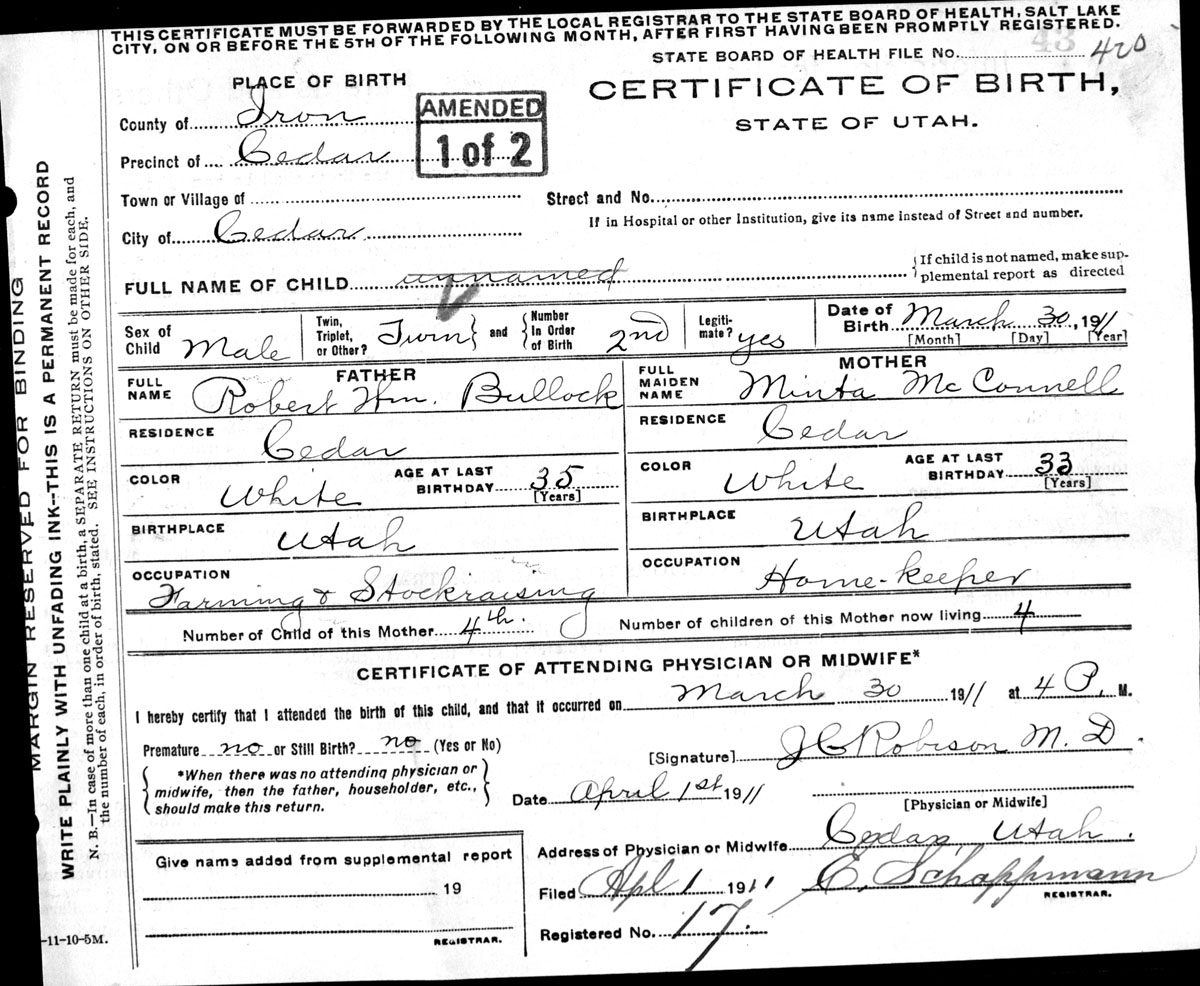 THIS CERTIFICATE MUST BE FORWARDED BY THE LOCAL REGISTRAR TO THE STATE BOARD OF HEALTH, SALT LAKE
CITY, ON OR BEFORE THE 5TH OF THE FOLLOWING MONTH, AFTER FIRST HAVING BEEN PROMPTLY REGISTERED.
43
STATE BOARD OF HEALTH FILE No. 420
PLACE OF BIRTH
CERTIFICATE OF BIRTH,
STATE OF UTAH.
County of Iron
AMENDED
1 of 2
Precinct of Cedar
Town or Village of
Street and No.
If in Hospital or other Institution, give its name instead of Street and number.
City of Cedar
FULL NAME OF CHILD unnamed
{If child is not named, make sup-
plemental report as directed
Sex of Child Male
Twin, Triplet, or Other? Twin } and { Number In Order of Birth 2nd
Legiti-mate? yes
Date of Birth March 30, 1911
[Month] [Day] [Year]
FATHER
FULL NAME Robert Wm. Bullock
MOTHER
FULL MAIDEN NAME Minta McConnell
RESIDENCE Cedar
RESIDENCE Cedar
COLOR White AGE AT LAST BIRTHDAY 35 [Years]
COLOR White AGE AT LAST BIRTHDAY 33 [Years]
BIRTHPLACE Utah
BIRTHPLACE Utah
OCCUPATION Farming & Stockraising
OCCUPATION Home-keeper
Number of Child of this Mother 4th. Number of children of this Mother now living 4
CERTIFICATE OF ATTENDING PHYSICIAN OR MIDWIFE*
I hereby certify that I attended the birth of this child, and that it occurred on March 30 1911 at 4 P. M.
Premature no or Still Birth? no (Yes or No)
[Signature] J C Robison M. D.
{ *When there was no attending physician or
midwife, then the father, householder, etc.,
should make this return. }
Date April 1st 1911
[Physician or Midwife]
Give name added from supplemental report
19
REGISTRAR.
Address of Physician or Midwife Cedar, Utah.
Filed Apl 1 1911 E. Schoppmann
REGISTRAR.
Registered No. 17.
-11-10-5M.
MARGIN RESERVED FOR BINDING
WRITE PLAINLY WITH UNFADING INK--THIS IS A PERMANENT RECORD
N. B.—In case of more than one child at a birth, a SEPARATE RETURN must be made for each, and
the number of each, in order of birth, stated. SEE INSTRUCTIONS ON OTHER SIDE.